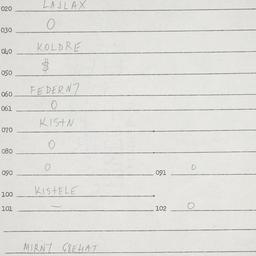 020 LAJLAX
030 O
040 KOLDRE
050 $
060 FEDERN7
061 O
070 KISTN
080 O
090 O 091 O
100 KISTELE
101 — 102 O
MIRN7